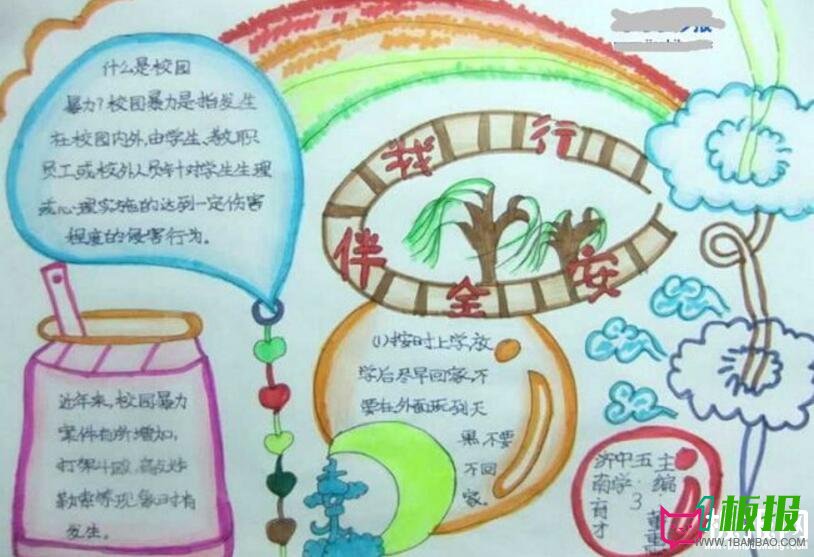 什么是校园
暴力?校园暴力是指发生
在校园内外,由学生、教职
员工或校外人员针对学生生理
或心理实施的达到一定伤害
程度的侵害行为。
安全伴我行
(1)按时上学,放
学后尽早回家,不
要在外面玩到天
黑,不要
不回
家。
近年来,校园暴力
案件有所增加,
打架斗殴、敲诈
勒索等现象时有
发生。
主编
五·3
中学
济南育才
板报
WWW.1BANBAO.COM